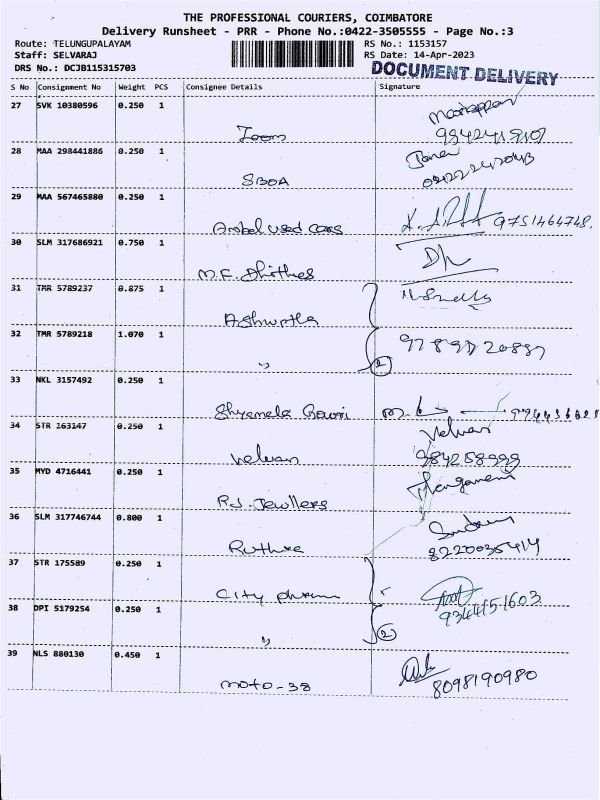 THE PROFESSIONAL COURIERS, COIMBATORE
Delivery Runsheet - PRR - Phone No.:0422-3505555 - Page No.:3
Route: TELUNGUPALAYAM RS No.: 1153157
Staff: SELVARAJ RS Date: 14-Apr-2023
DRS No.: DCJB115315703 DOCUMENT DELIVERY
S No Consignment No Weight PCS Consignee Details Signature
27 SVK 10380596 0.250 1
Zoom
28 MAA 298441886 0.250 1
SBOA
29 MAA 567465880 0.250 1
used cars 9751464748.
30 SLM 317686921 0.750 1
M.F.
31 TMR 5789237 0.875 1
32 TMR 5789218 1.070 1
" 2
33 NKL 3157492 0.250 1
Shyamela Gowri
34 STR 163147 0.250 1 Velvan
Velvan 984258999
35 MYD 4716441 0.250 1 Thangamani
RJ. Jewllers
36 SLM 317746744 0.800 1
8220035414
37 STR 175589 0.250 1
City pharma
38 DPI 5179254 0.250 1 9344151603
" 2
39 NLS 880130 0.450 1
moto-38 8098190980